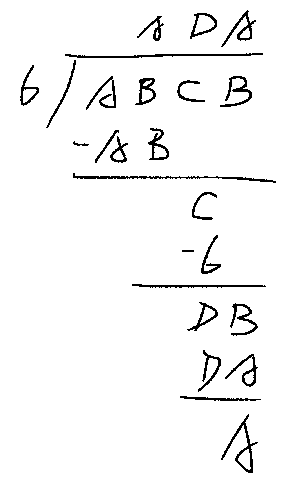 A D A
6 / A B C B
- A B
C
- 6
D B
D A
A